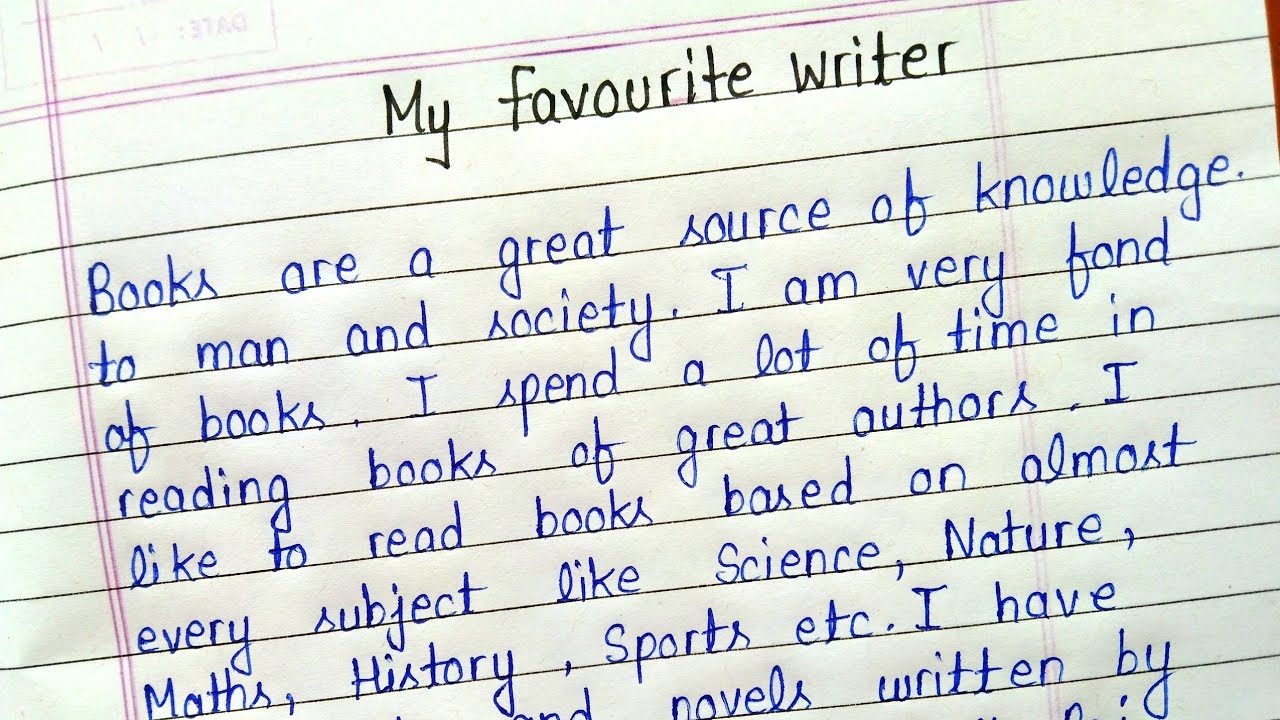 DATE: / /
My favourite writer
Books are a great source of knowledge.
to man and society. I am very fond
of books. I spend a lot of time in
reading books of great authors. I
like to read books based on almost
every subject like Science, Nature,
Maths, History, Sports etc. I have
and novels written by